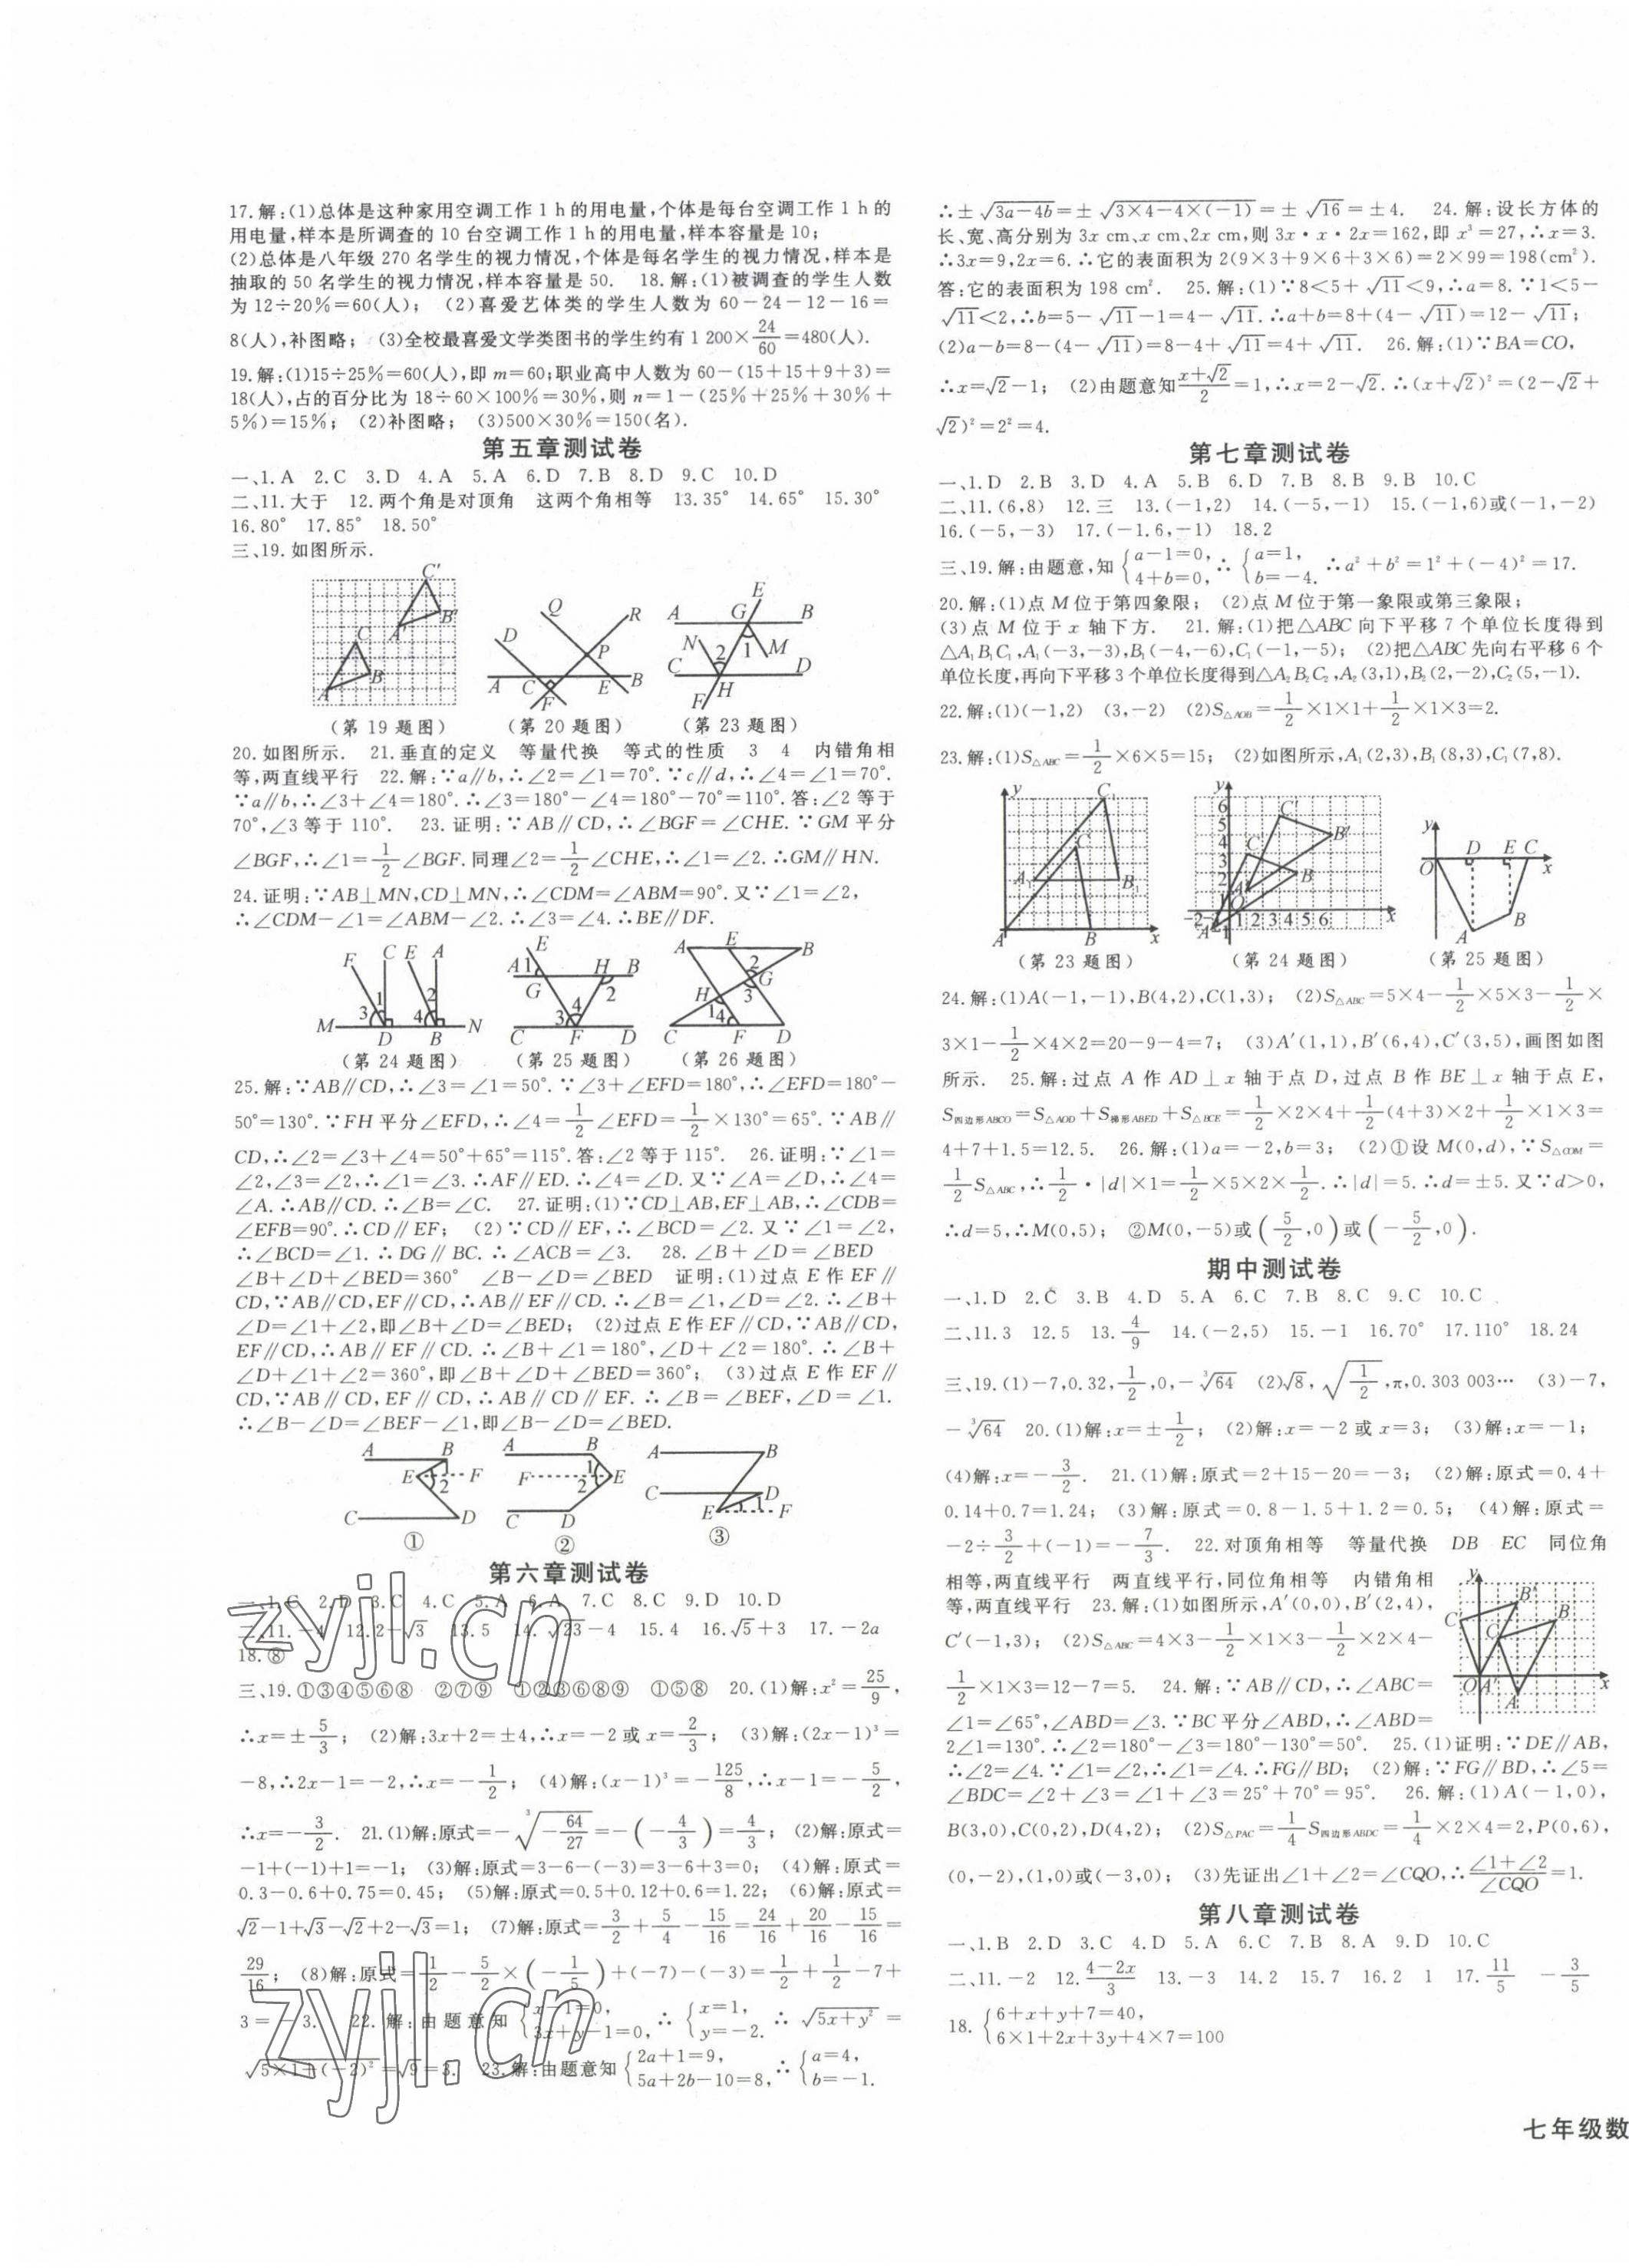 17.解:(1)总体是这种家用空调工作1 h的用电量,个体是每台空调工作1 h的
用电量,样本是所调查的10台空调工作1 h的用电量,样本容量是10;
(2)总体是八年级270名学生的视力情况,个体是每名学生的视力情况,样本是
抽取的50名学生的视力情况,样本容量是50. 18.解:(1)被调查的学生人数
为12÷20%=60(人); (2)喜爱艺体类的学生人数为60-24-12-16=
8(人),补图略; (3)全校最喜爱文学类图书的学生约有1 200×24/60=480(人).
19.解:(1)15÷25%=60(人),即m=60;职业高中人数为60-(15+15+9+3)=
18(人),占的百分比为18÷60×100%=30%,则n=1-(25%+25%+30%+
5%)=15%; (2)补图略; (3)500×30%=150(名).
第五章测试卷
一、1.A 2.C 3.D 4.A 5.A 6.D 7.B 8.D 9.C 10.D
二、11.大于 12.两个角是对顶角 这两个角相等 13.35° 14.65° 15.30°
16.80° 17.85° 18.50°
三、19.如图所示.
(第19题图) (第20题图) (第23题图)
20.如图所示. 21.垂直的定义 等量代换 等式的性质 3 4 内错角相
等,两直线平行 22.解:∵a∥b,∴∠2=∠1=70°.∵c∥d,∴∠4=∠1=70°.
∵a∥b,∴∠3+∠4=180°.∴∠3=180°-∠4=180°-70°=110°.答:∠2等于
70°,∠3等于110°. 23.证明:∵AB∥CD,∴∠BGF=∠CHE.∵GM平分
∠BGF,∴∠1=1/2∠BGF.同理∠2=1/2∠CHE,∴∠1=∠2.∴GM∥HN.
24.证明:∵AB⊥MN,CD⊥MN,∴∠CDM=∠ABM=90°.又∵∠1=∠2,
∴∠CDM-∠1=∠ABM-∠2.∴∠3=∠4.∴BE∥DF.
(第24题图) (第25题图) (第26题图)
25.解:∵AB∥CD,∴∠3=∠1=50°.∵∠3+∠EFD=180°,∴∠EFD=180°-
50°=130°.∵FH平分∠EFD,∴∠4=1/2∠EFD=1/2×130°=65°.∵AB∥
CD,∴∠2=∠3+∠4=50°+65°=115°.答:∠2等于115°. 26.证明:∵∠1=
∠2,∠3=∠2,∴∠1=∠3.∴AF∥ED.∴∠4=∠D.又∵∠A=∠D,∴∠4=
∠A.∴AB∥CD.∴∠B=∠C. 27.证明:(1)∵CD⊥AB,EF⊥AB,∴∠CDB=
∠EFB=90°.∴CD∥EF; (2)∵CD∥EF,∴∠BCD=∠2.又∵∠1=∠2,
∴∠BCD=∠1.∴DG∥BC.∴∠ACB=∠3. 28.∠B+∠D=∠BED
∠B+∠D+∠BED=360° ∠B-∠D=∠BED 证明:(1)过点E作EF∥
CD,∵AB∥CD,EF∥CD,∴AB∥EF∥CD.∴∠B=∠1,∠D=∠2.∴∠B+
∠D=∠1+∠2,即∠B+∠D=∠BED; (2)过点E作EF∥CD,∵AB∥CD,
EF∥CD,∴AB∥EF∥CD.∴∠B+∠1=180°,∠D+∠2=180°.∴∠B+
∠D+∠1+∠2=360°,即∠B+∠D+∠BED=360°; (3)过点E作EF∥
CD,∵AB∥CD,EF∥CD,∴AB∥CD∥EF.∴∠B=∠BEF,∠D=∠1.
∴∠B-∠D=∠BEF-∠1,即∠B-∠D=∠BED.
① ② ③
第六章测试卷
一、1.C 2.D 3.C 4.C 5.A 6.A 7.C 8.C 9.D 10.D
二、11.-4 12.2-√3 13.5 14.√23-4 15.4 16.√5+3 17.-2a
18.⑧
三、19.①③④⑤⑥⑧ ②⑦⑨ ①②③⑥⑧⑨ ①⑤⑧ 20.(1)解:x²=25/9,
∴x=±5/3; (2)解:3x+2=±4,∴x=-2或x=2/3; (3)解:(2x-1)³=
-8,∴2x-1=-2,∴x=-1/2; (4)解:(x-1)³=-125/8,∴x-1=-5/2,
∴x=-3/2. 21.(1)解:原式=-∛(-64/27)=-(-4/3)=4/3; (2)解:原式=
-1+(-1)+1=-1; (3)解:原式=3-6-(-3)=3-6+3=0; (4)解:原式=
0.3-0.6+0.75=0.45; (5)解:原式=0.5+0.12+0.6=1.22; (6)解:原式=
√2-1+√3-√2+2-√3=1; (7)解:原式=3/2+5/4-15/16=24/16+20/16-15/16=
29/16; (8)解:原式=1/2-5/2×(-1/5)+(-7)-(-3)=1/2+1/2-7+
3=-3. 22.解:由题意知{x-1=0, 3x+y-1=0,∴{x=1, y=-2.∴√(5x+y²)=
√(5×1+(-2)²)=√9=3. 23.解:由题意知{2a+1=9, 5a+2b-10=8,∴{a=4, b=-1.
∴±√(3a-4b)=±√(3×4-4×(-1))=±√16=±4. 24.解:设长方体的
长、宽、高分别为3x cm、x cm、2x cm,则3x·x·2x=162,即x³=27,∴x=3.
∴3x=9,2x=6.∴它的表面积为2(9×3+9×6+3×6)=2×99=198(cm²).
答:它的表面积为198 cm². 25.解:(1)∵8<5+√11<9,∴a=8.∵1<5-
√11<2,∴b=5-√11-1=4-√11.∴a+b=8+(4-√11)=12-√11;
(2)a-b=8-(4-√11)=8-4+√11=4+√11. 26.解:(1)∵BA=CO,
∴x=√2-1; (2)由题意知(x+√2)/2=1,∴x=2-√2.∴(x+√2)²=(2-√2+
√2)²=2²=4.
第七章测试卷
一、1.D 2.B 3.D 4.A 5.B 6.D 7.B 8.B 9.B 10.C
二、11.(6,8) 12.三 13.(-1,2) 14.(-5,-1) 15.(-1,6)或(-1,-2)
16.(-5,-3) 17.(-1.6,-1) 18.2
三、19.解:由题意,知{a-1=0, 4+b=0,∴{a=1, b=-4.∴a²+b²=1²+(-4)²=17.
20.解:(1)点M位于第四象限; (2)点M位于第一象限或第三象限;
(3)点M位于x轴下方. 21.解:(1)把△ABC向下平移7个单位长度得到
△A₁B₁C₁,A₁(-3,-3),B₁(-4,-6),C₁(-1,-5); (2)把△ABC先向右平移6个
单位长度,再向下平移3个单位长度得到△A₂B₂C₂,A₂(3,1),B₂(2,-2),C₂(5,-1).
22.解:(1)(-1,2) (3,-2) (2)S△AOB=1/2×1×1+1/2×1×3=2.
23.解:(1)S△ABC=1/2×6×5=15; (2)如图所示,A₁(2,3),B₁(8,3),C₁(7,8).
(第23题图) (第24题图) (第25题图)
24.解:(1)A(-1,-1),B(4,2),C(1,3); (2)S△ABC=5×4-1/2×5×3-1/2×
3×1-1/2×4×2=20-9-4=7; (3)A′(1,1),B′(6,4),C′(3,5),画图如图
所示. 25.解:过点A作AD⊥x轴于点D,过点B作BE⊥x轴于点E,
S四边形ABCO=S△AOD+S梯形ABED+S△BCE=1/2×2×4+1/2(4+3)×2+1/2×1×3=
4+7+1.5=12.5. 26.解:(1)a=-2,b=3; (2)①设M(0,d),∵S△COM=
1/2S△ABC,∴1/2·|d|×1=1/2×5×2×1/2.∴|d|=5.∴d=±5.又∵d>0,
∴d=5,∴M(0,5); ②M(0,-5)或(5/2,0)或(-5/2,0).
期中测试卷
一、1.D 2.C 3.B 4.D 5.A 6.C 7.B 8.C 9.C 10.C
二、11.3 12.5 13.4/9 14.(-2,5) 15.-1 16.70° 17.110° 18.24
三、19.(1)-7,0.32,1/2,0,-∛64 (2)√8,√(1/2),π,0.303 003… (3)-7,
-∛64 20.(1)解:x=±1/2; (2)解:x=-2或x=3; (3)解:x=-1;
(4)解:x=-3/2. 21.(1)解:原式=2+15-20=-3; (2)解:原式=0.4+
0.14+0.7=1.24; (3)解:原式=0.8-1.5+1.2=0.5; (4)解:原式=
-2÷3/2+(-1)=-7/3. 22.对顶角相等 等量代换 DB EC 同位角
相等,两直线平行 两直线平行,同位角相等 内错角相
等,两直线平行 23.解:(1)如图所示,A′(0,0),B′(2,4),
C′(-1,3); (2)S△ABC=4×3-1/2×1×3-1/2×2×4-
1/2×1×3=12-7=5. 24.解:∵AB∥CD,∴∠ABC=
∠1=65°,∠ABD=∠3.∵BC平分∠ABD,∴∠ABD=
2∠1=130°.∴∠2=180°-∠3=180°-130°=50°. 25.(1)证明:∵DE∥AB,
∴∠2=∠4.∵∠1=∠2,∴∠1=∠4.∴FG∥BD; (2)解:∵FG∥BD,∴∠5=
∠BDC=∠2+∠3=∠1+∠3=25°+70°=95°. 26.解:(1)A(-1,0),
B(3,0),C(0,2),D(4,2); (2)S△PAC=1/4S四边形ABDC=1/4×2×4=2,P(0,6),
(0,-2),(1,0)或(-3,0); (3)先证出∠1+∠2=∠CQO,∴(∠1+∠2)/∠CQO=1.
第八章测试卷
一、1.B 2.D 3.C 4.D 5.A 6.C 7.B 8.A 9.D 10.C
二、11.-2 12.(4-2x)/3 13.-3 14.2 15.7 16.2 1 17.11/5 -3/5
18.{6+x+y+7=40, 6×1+2x+3y+4×7=100
七年级数
zyjl.cn
zyjl.cn